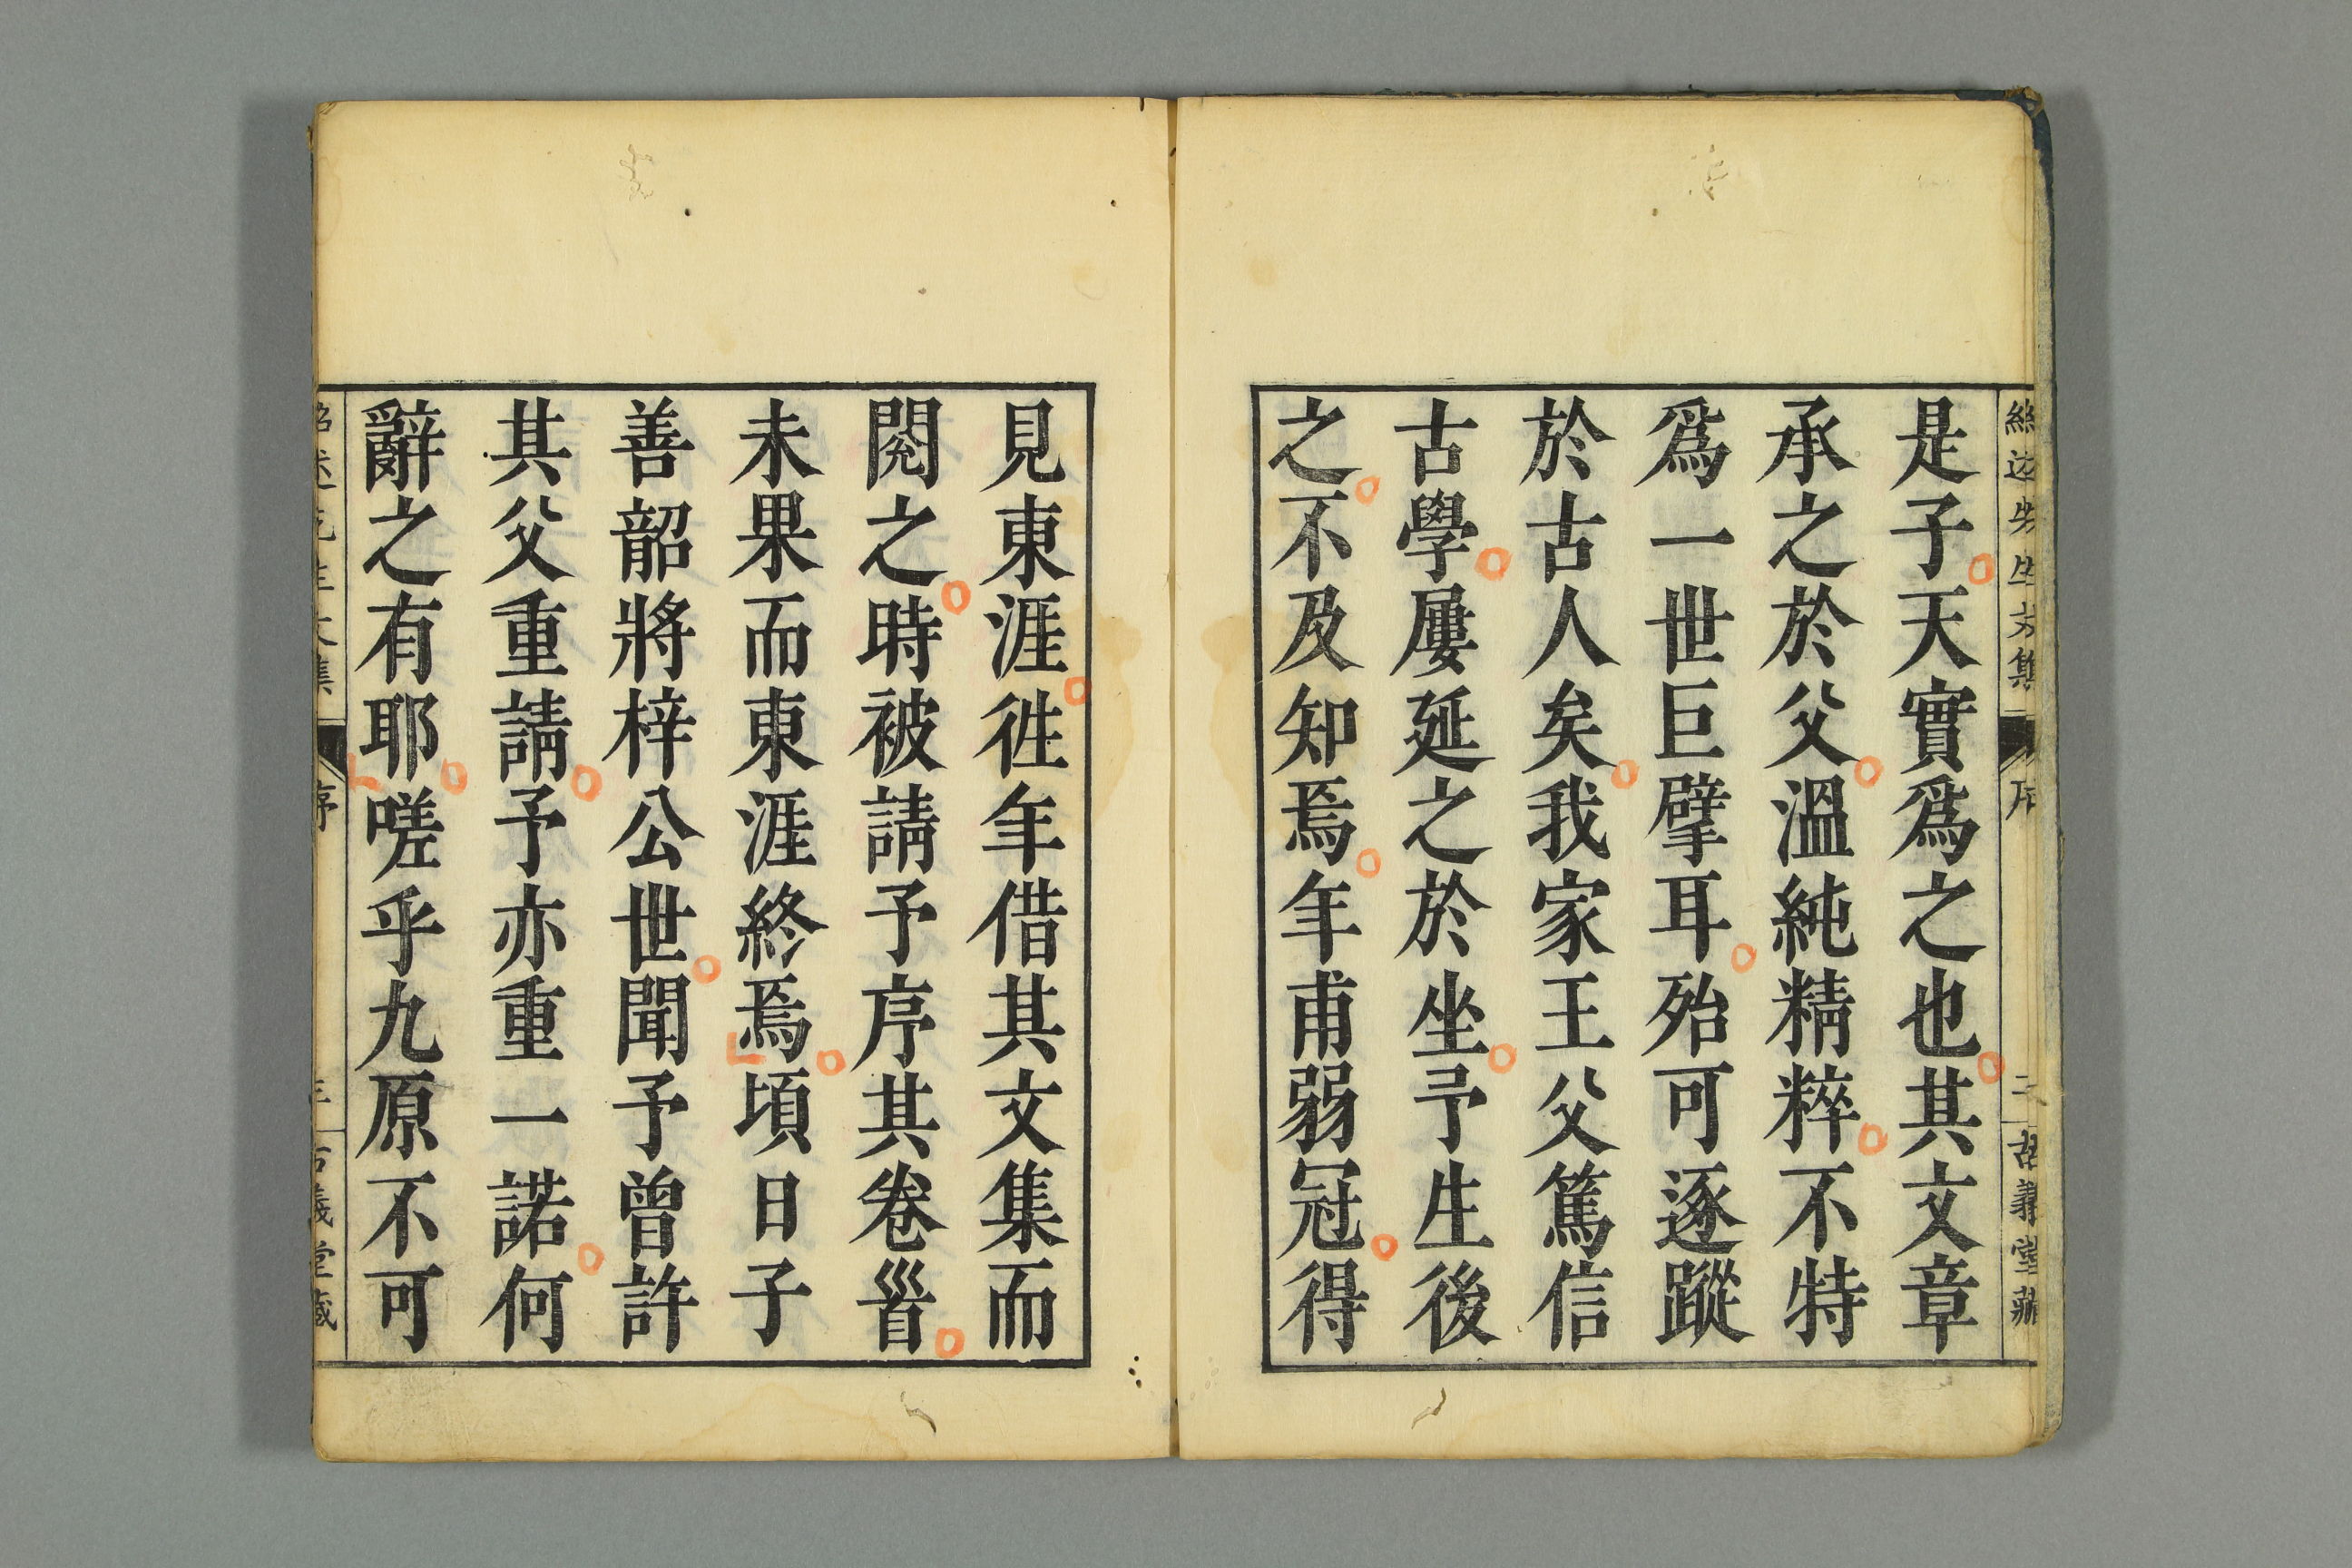 是子天實爲之也其文章
承之於父溫純精粹不特
爲一世巨擘耳殆可逐蹤
於古人矣我家王父篤信
古學屢延之於坐予生後
之不及知焉年甫弱冠得
見東涯徃年借其文集而
閱之時被請予序其卷首
未果而東涯終焉頃日子
善韶將梓公世聞予曾許
其父重請予亦重一諾何
辭之有耶嗟乎九原不可
紹述先生文集
序
三
古義堂藏